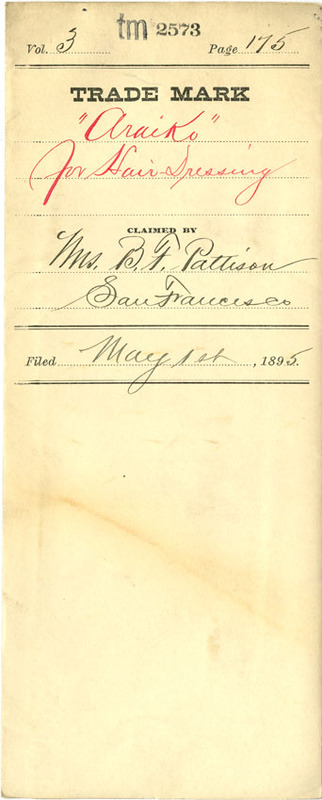 tm 2573
Vol. 3 Page 175
TRADE MARK
"Araiko"
for Hair Dressing
CLAIMED BY
Mrs. B. F. Pattison
San Francisco
Filed May 1st, 1895.